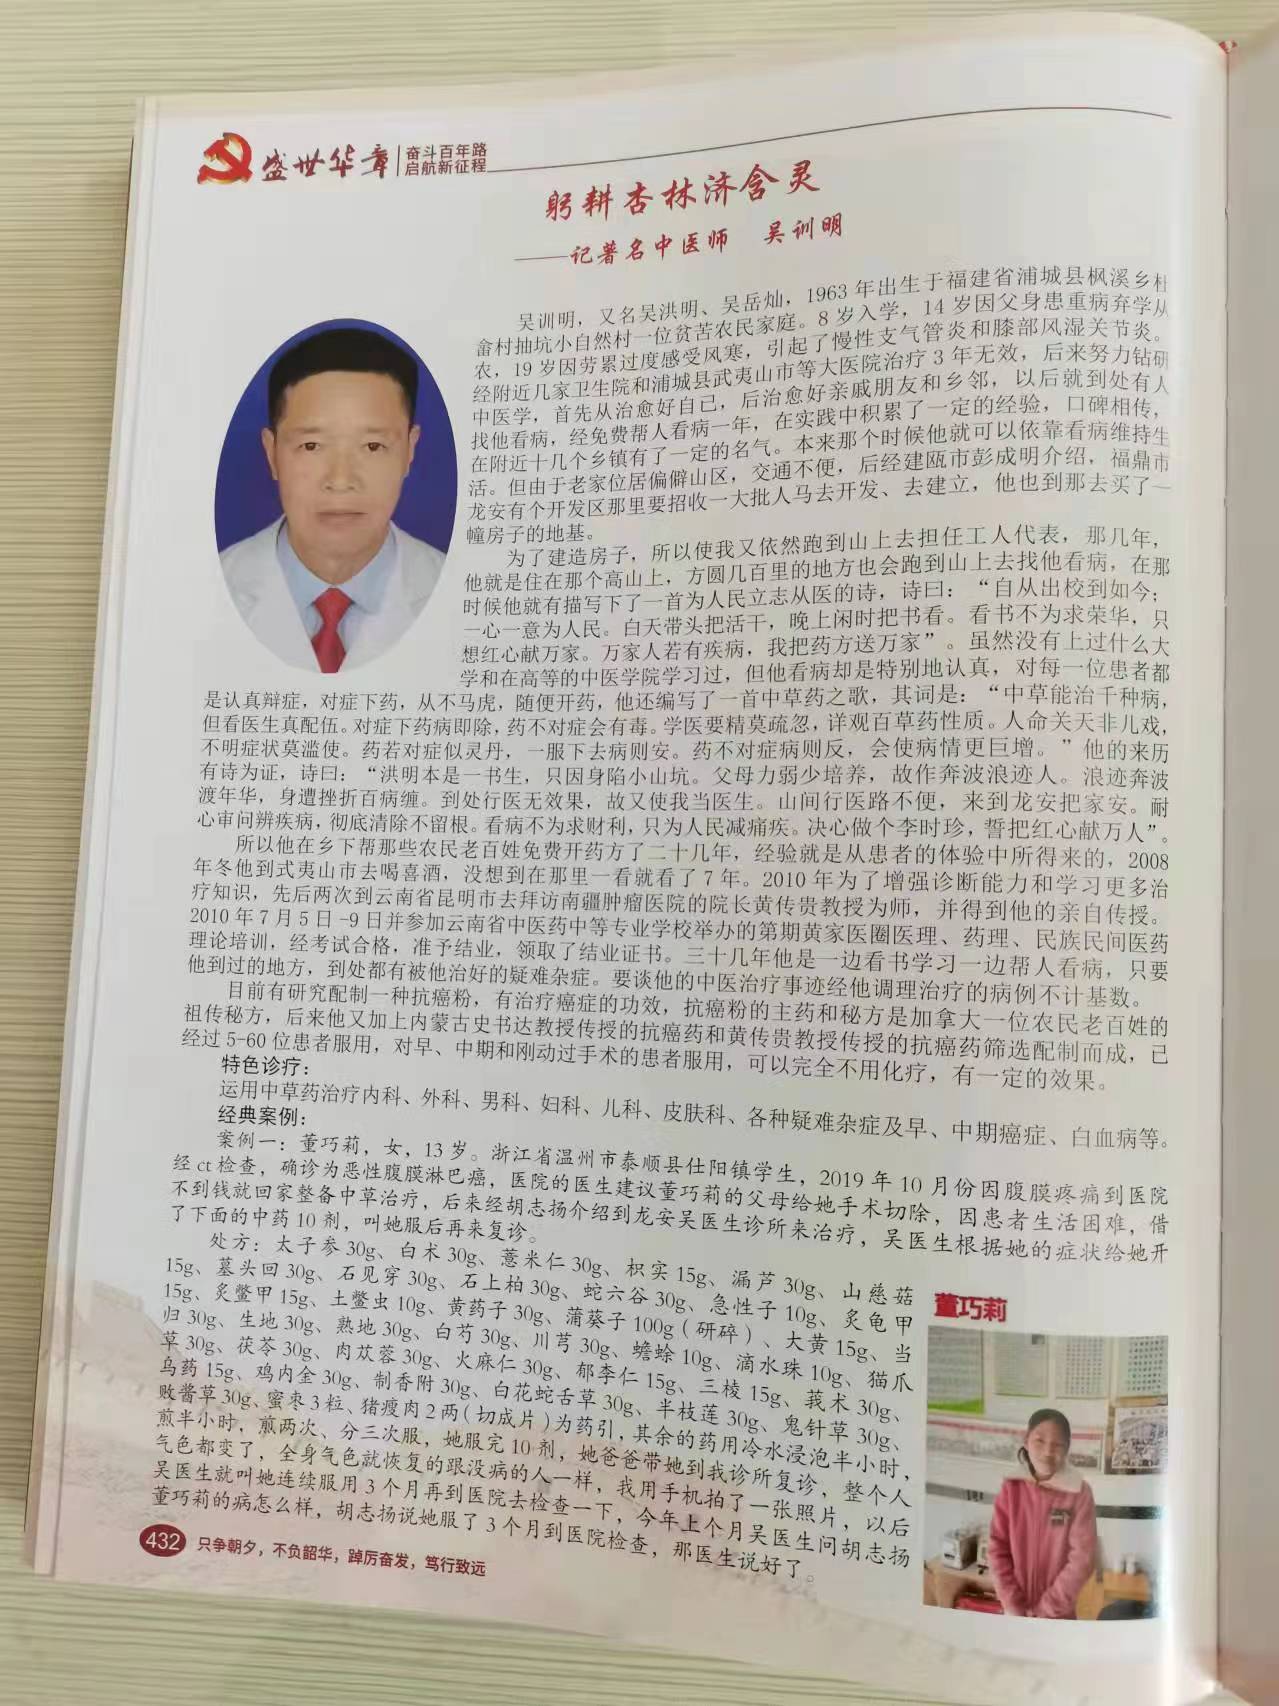 盛世华章
奋斗百年路
启航新征程
躬耕杏林济含灵
——记著名中医师 吴训明
吴训明，又名吴洪明、吴岳灿，1963年出生于福建省浦城县枫溪乡杜
畲村抽坑小自然村一位贫苦农民家庭。8岁入学，14岁因父身患重病弃学从
农，19岁因劳累过度感受风寒，引起了慢性支气管炎和膝部风湿关节炎。
经附近几家卫生院和浦城县武夷山市等大医院治疗3年无效，后来努力钻研
中医学，首先从治愈好自己，后治愈好亲戚朋友和乡邻，以后就到处有人
找他看病，经免费帮人看病一年，在实践中积累了一定的经验，口碑相传，
在附近十几个乡镇有了一定的名气。本来那个时候他就可以依靠看病维持生
活。但由于老家位居偏僻山区，交通不便，后经建瓯市彭成明介绍，福鼎市
龙安有个开发区那里要招收一大批人马去开发、去建立，他也到那去买了一
幢房子的地基。
为了建造房子，所以使我又依然跑到山上去担任工人代表，那几年，
他就是住在那个高山上，方圆几百里的地方也会跑到山上去找他看病，在那
时候他就有描写下了一首为人民立志从医的诗，诗曰：“自从出校到如今；
一心一意为人民。白天带头把活干，晚上闲时把书看。看书不为求荣华，只
想红心献万家。万家人若有疾病，我把药方送万家”。虽然没有上过什么大
学和在高等的中医学院学习过，但他看病却是特别地认真，对每一位患者都
是认真辩症，对症下药，从不马虎，随便开药，他还编写了一首中草药之歌，其词是：“中草能治千种病，
但看医生真配伍。对症下药病即除，药不对症会有毒。学医要精莫疏忽，详观百草药性质。人命关天非儿戏，
不明症状莫滥使。药若对症似灵丹，一服下去病则安。药不对症病则反，会使病情更巨增。”他的来历
有诗为证，诗曰：“洪明本是一书生，只因身陷小山坑。父母力弱少培养，故作奔波浪迹人。浪迹奔波
渡年华，身遭挫折百病缠。到处行医无效果，故又使我当医生。山间行医路不便，来到龙安把家安。耐
心审问辨疾病，彻底清除不留根。看病不为求财利，只为人民减痛疾。决心做个李时珍，誓把红心献万人”。
所以他在乡下帮那些农民老百姓免费开药方了二十几年，经验就是从患者的体验中所得来的，2008
年冬他到式夷山市去喝喜酒，没想到在那里一看就看了7年。2010年为了增强诊断能力和学习更多治
疗知识，先后两次到云南省昆明市去拜访南疆肿瘤医院的院长黄传贵教授为师，并得到他的亲自传授。
2010年7月5日-9日并参加云南省中医药中等专业学校举办的第期黄家医圈医理、药理、民族民间医药
理论培训，经考试合格，准予结业，领取了结业证书。三十几年他是一边看书学习一边帮人看病，只要
他到过的地方，到处都有被他治好的疑难杂症。要谈他的中医治疗事迹经他调理治疗的病例不计基数。
目前有研究配制一种抗癌粉，有治疗癌症的功效，抗癌粉的主药和秘方是加拿大一位农民老百姓的
祖传秘方，后来他又加上内蒙古史书达教授传授的抗癌药和黄传贵教授传授的抗癌药筛选配制而成，己
经过5-60位患者服用，对早、中期和刚动过手术的患者服用，可以完全不用化疗，有一定的效果。
特色诊疗：
运用中草药治疗内科、外科、男科、妇科、儿科、皮肤科、各种疑难杂症及早、中期癌症、白血病等。
经典案例：
案例一：董巧莉，女，13岁。浙江省温州市泰顺县仕阳镇学生，2019年10月份因腹膜疼痛到医院
经ct检查，确诊为恶性腹膜淋巴癌，医院的医生建议董巧莉的父母给她手术切除，因患者生活困难，借
不到钱就回家整备中草治疗，后来经胡志扬介绍到龙安吴医生诊所来治疗，吴医生根据她的症状给她开
了下面的中药10剂，叫她服后再来复诊。
处方：太子参30g、白术30g、薏米仁30g、枳实15g、漏芦30g、山慈菇
15g、墓头回30g、石见穿30g、石上柏30g、蛇六谷30g、急性子10g、炙龟甲
15g、炙鳖甲15g、土鳖虫10g、黄药子30g、蒲葵子100g（研碎）、大黄15g、当
归30g、生地30g、熟地30g、白芍30g、川芎30g、蟾蜍10g、滴水珠10g、猫爪
草30g、茯苓30g、肉苁蓉30g、火麻仁30g、郁李仁15g、三棱15g、莪术30g、
乌药15g、鸡内全30g、制香附30g、白花蛇舌草30g、半枝莲30g、鬼针草30g、
败酱草30g、蜜枣3粒、猪瘦肉2两（切成片）为药引，其余的药用冷水浸泡半小时，
煎半小时，煎两次、分三次服，她服完10剂，她爸爸带她到我诊所复诊，整个人
气色都变了，全身气色就恢复的跟没病的人一样，我用手机拍了一张照片，以后
吴医生就叫她连续服用3个月再到医院去检查一下，今年上个月吴医生问胡志扬
董巧莉的病怎么样，胡志扬说她服了3个月到医院检查，那医生说好了。
董巧莉
432 只争朝夕，不负韶华，踔厉奋发，笃行致远